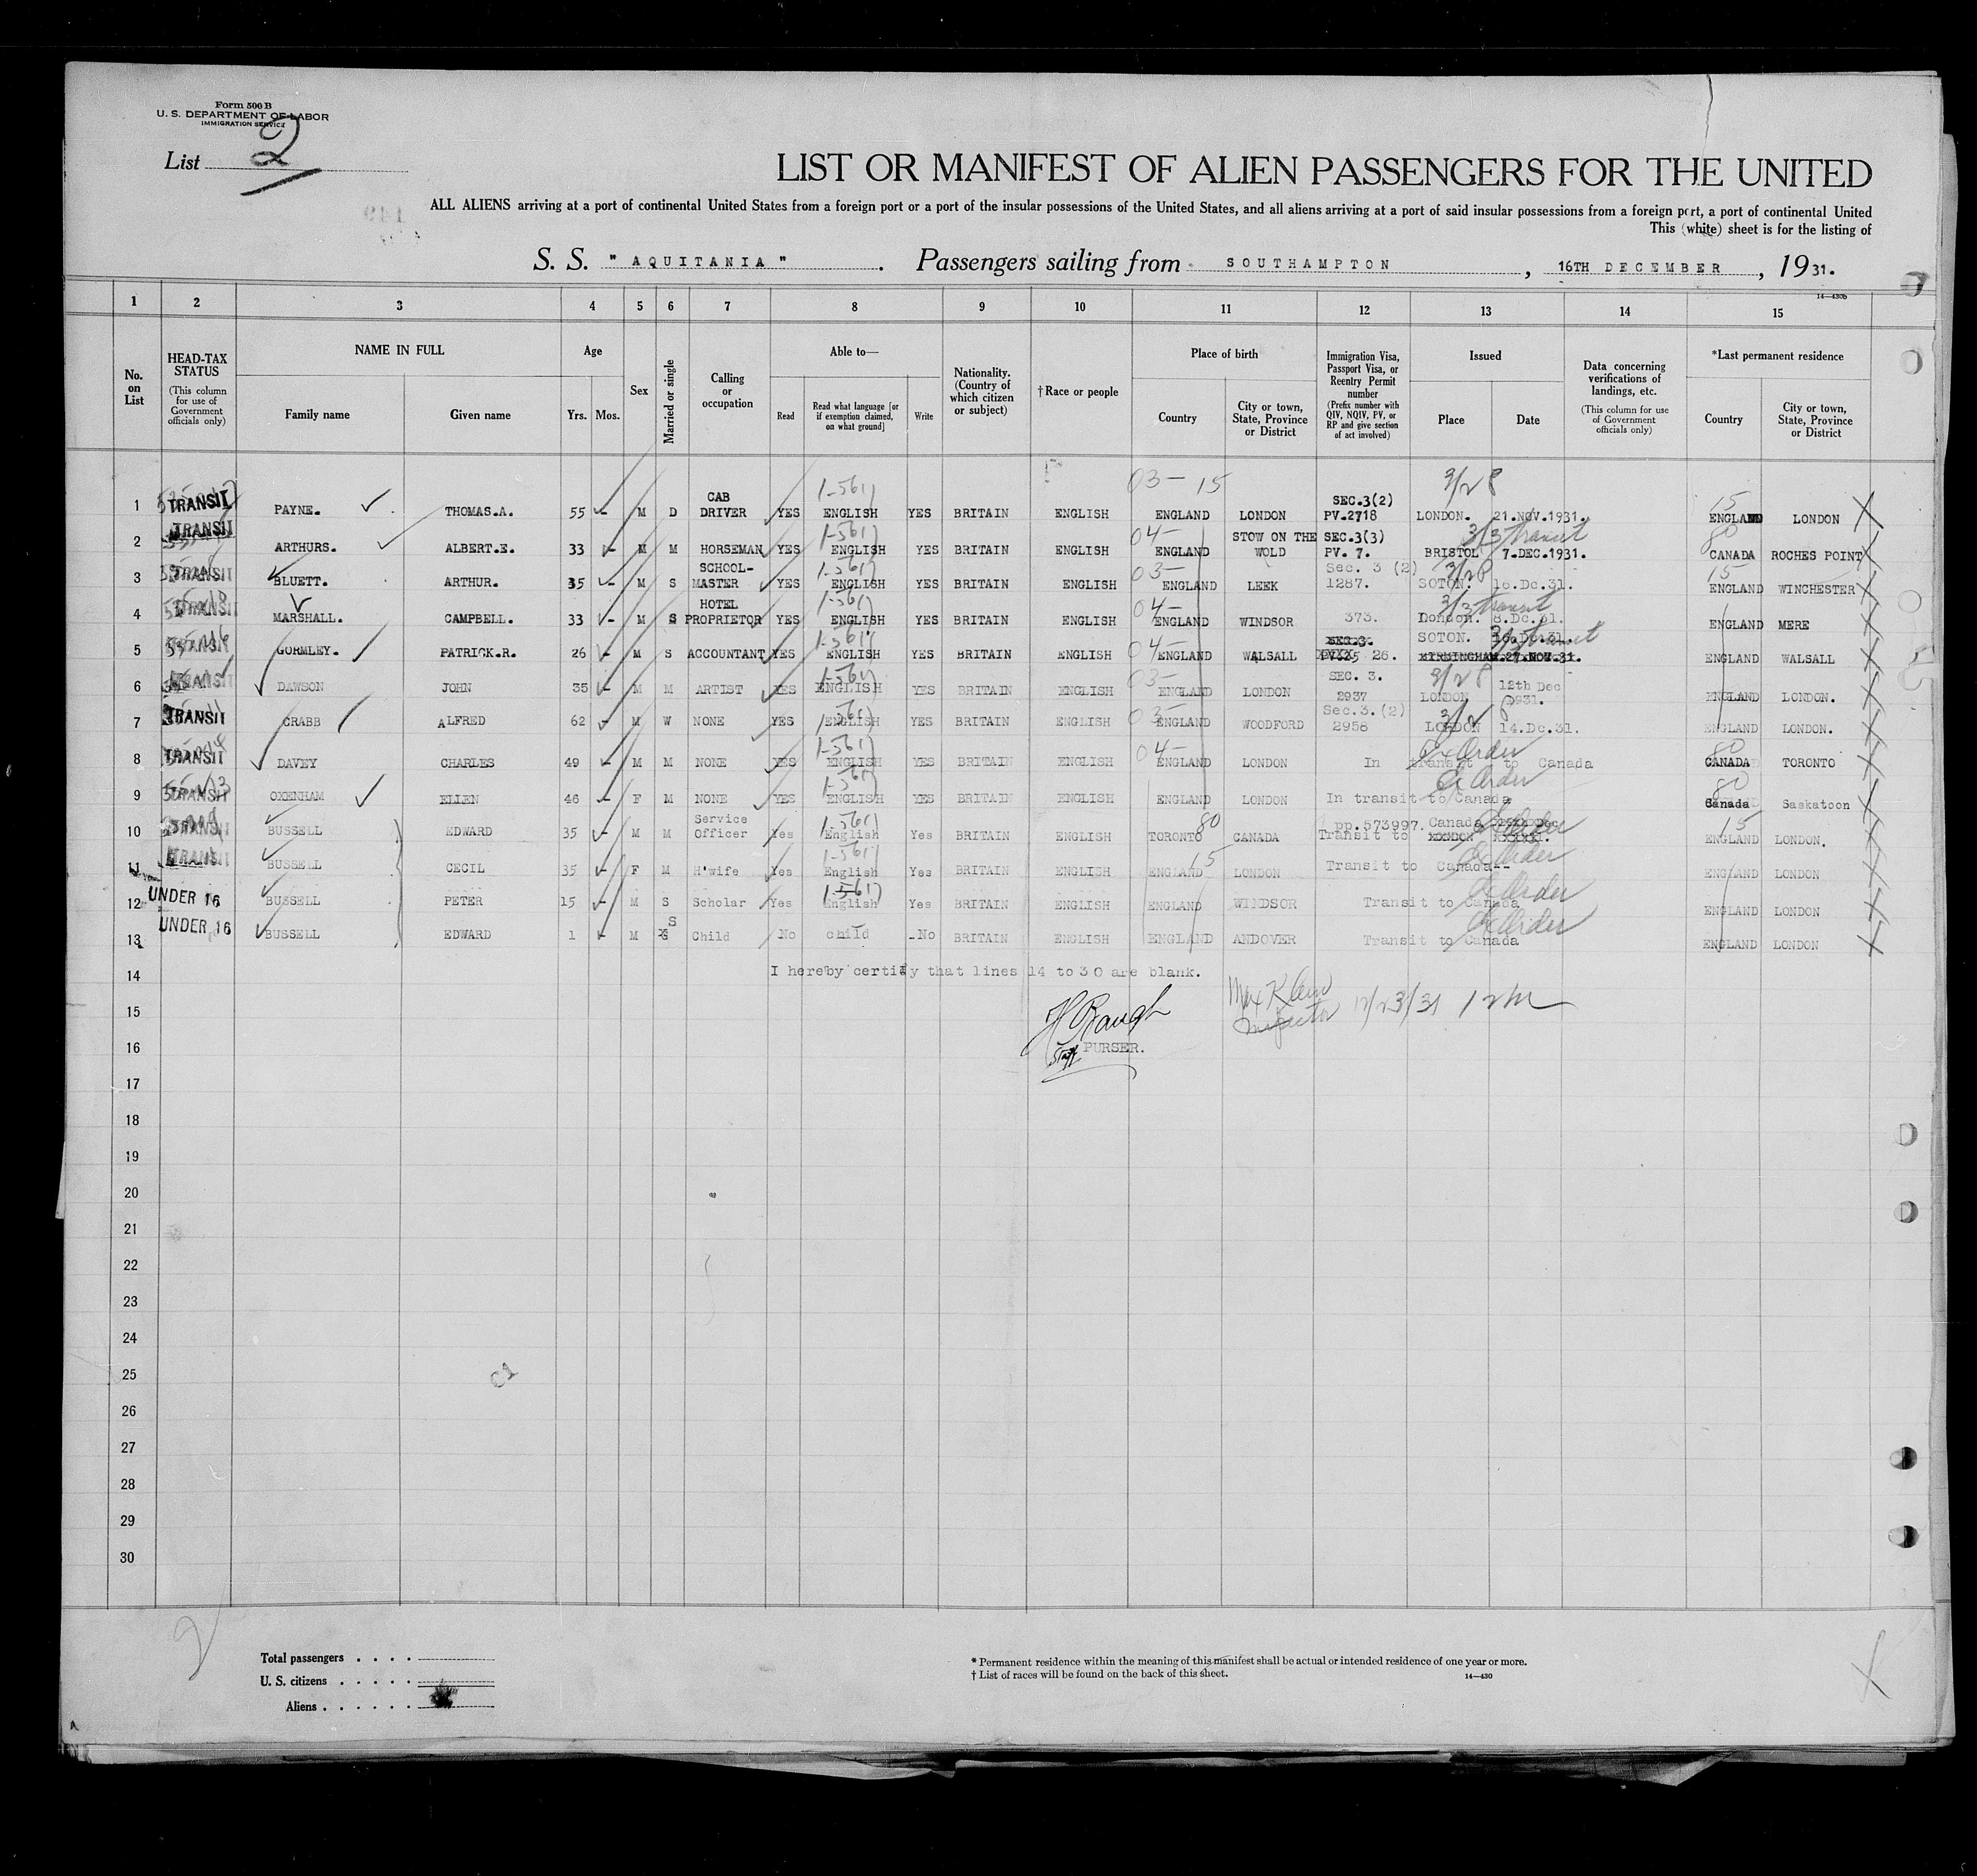 Form 500 B
U. S. DEPARTMENT OF LABOR
IMMIGRATION SERVICE
List 2
LIST OR MANIFEST OF ALIEN PASSENGERS FOR THE UNITED
ALL ALIENS arriving at a port of continental United States from a foreign port or a port of the insular possessions of the United States, and all aliens arriving at a port of said insular possessions from a foreign port, a port of continental United
This (white) sheet is for the listing of
S. S. " AQUITANIA ". Passengers sailing from SOUTHAMPTON, 16TH DECEMBER, 1931.
14—430b
1 2 3 4 5 6 7 8 9 10 11 12 13 14 15
No. on List
HEAD-TAX STATUS (This column for use of Government officials only)
NAME IN FULL
Family name Given name
Age
Yrs. Mos.
Sex
Married or single
Calling or occupation
Able to—
Read
Read what language [or if exemption claimed, on what ground]
Write
Nationality. (Country of which citizen or subject)
†Race or people
Place of birth
Country
City or town, State, Province or District
Immigration Visa, Passport Visa, or Reentry Permit number (Prefix number with QIV, NQIV, PV, or RP and give section of act involved)
Issued
Place Date
Data concerning verifications of landings, etc. (This column for use of Government officials only)
*Last permanent residence
Country
City or town, State, Province or District
03- 15 3/28
1 TRANSIT PAYNE. THOMAS.A. 55 - M D CAB DRIVER YES ENGLISH YES BRITAIN ENGLISH ENGLAND LONDON SEC.3(2) PV.2718 LONDON. 21.NOV.1931. 15 ENGLAND LONDON
2 TRANSIT ARTHURS. ALBERT.E. 33 - M M HORSEMAN YES ENGLISH YES BRITAIN ENGLISH 04- ENGLAND STOW ON THE WOLD SEC.3(3) PV. 7. BRISTOL 7.DEC.1931. 3/3 transit 80 CANADA ROCHES POINT
3 TRANSIT BLUETT. ARTHUR. 35 - M S SCHOOL-MASTER YES ENGLISH YES BRITAIN ENGLISH 03- ENGLAND LEEK Sec. 3 (2) 1287. SOTON. 16.Dc.31. 3/28 15 ENGLAND WINCHESTER
4 TRANSIT MARSHALL. CAMPBELL. 33 - M S HOTEL PROPRIETOR YES ENGLISH YES BRITAIN ENGLISH 04- ENGLAND WINDSOR 373. London. 8.Dc.31. 3/3 transit ENGLAND MERE
5 GORMLEY. PATRICK.R. 26 - M S ACCOUNTANT YES ENGLISH YES BRITAIN ENGLISH 04- ENGLAND WALSALL SEC.3. 26. SOTON. 16.Dc.31. BIRMINGHAM.27.NOV.31. 3/3 transit ENGLAND WALSALL
6 DAWSON JOHN 35 - M M ARTIST YES ENGLISH YES BRITAIN ENGLISH 03- ENGLAND LONDON SEC. 3. 2937 LONDON 12th Dec 1931. 3/28 ENGLAND LONDON.
7 TRANSIT CRABB ALFRED 62 - M W NONE YES ENGLISH YES BRITAIN ENGLISH 03- ENGLAND WOODFORD Sec.3.(2) 2958 LONDON 14.Dc.31. 3/28 ENGLAND LONDON.
8 TRANSIT DAVEY CHARLES 49 - M M NONE YES ENGLISH YES BRITAIN ENGLISH 04- ENGLAND LONDON In transit to Canada Ex Order 80 CANADA TORONTO
9 TRANSIT OXENHAM ELLEN 46 - F M NONE YES ENGLISH YES BRITAIN ENGLISH ENGLAND LONDON In transit to Canada Ex Order 80 Canada Saskatoon
10 TRANSIT BUSSELL EDWARD 35 - M M Service Officer Yes English Yes BRITAIN ENGLISH TORONTO 80 CANADA pp.573997. Transit to Canada Ex Order 15 ENGLAND LONDON.
11 TRANSIT BUSSELL CECIL 35 - F M H'wife Yes English Yes BRITAIN ENGLISH ENGLAND 15 LONDON Transit to Canada-- Ex Order ENGLAND LONDON
12 UNDER 16 BUSSELL PETER 15 - M S Scholar Yes English Yes BRITAIN ENGLISH ENGLAND WINDSOR Transit to Canada Ex Order ENGLAND LONDON
13 UNDER 16 BUSSELL EDWARD 1 - M S Child No child No BRITAIN ENGLISH ENGLAND ANDOVER Transit to Canada Ex Order ENGLAND LONDON
14 I hereby certify that lines 14 to 30 are blank.
15 Max Klein Inspector 12/23/31
16 Staff PURSER.
17
18
19
20
21
22
23
24
25
26
27
28
29
30
Total passengers . . . .
U. S. citizens . . . . .
Aliens . . . . . .
* Permanent residence within the meaning of this manifest shall be actual or intended residence of one year or more.
† List of races will be found on the back of this sheet.
14—430